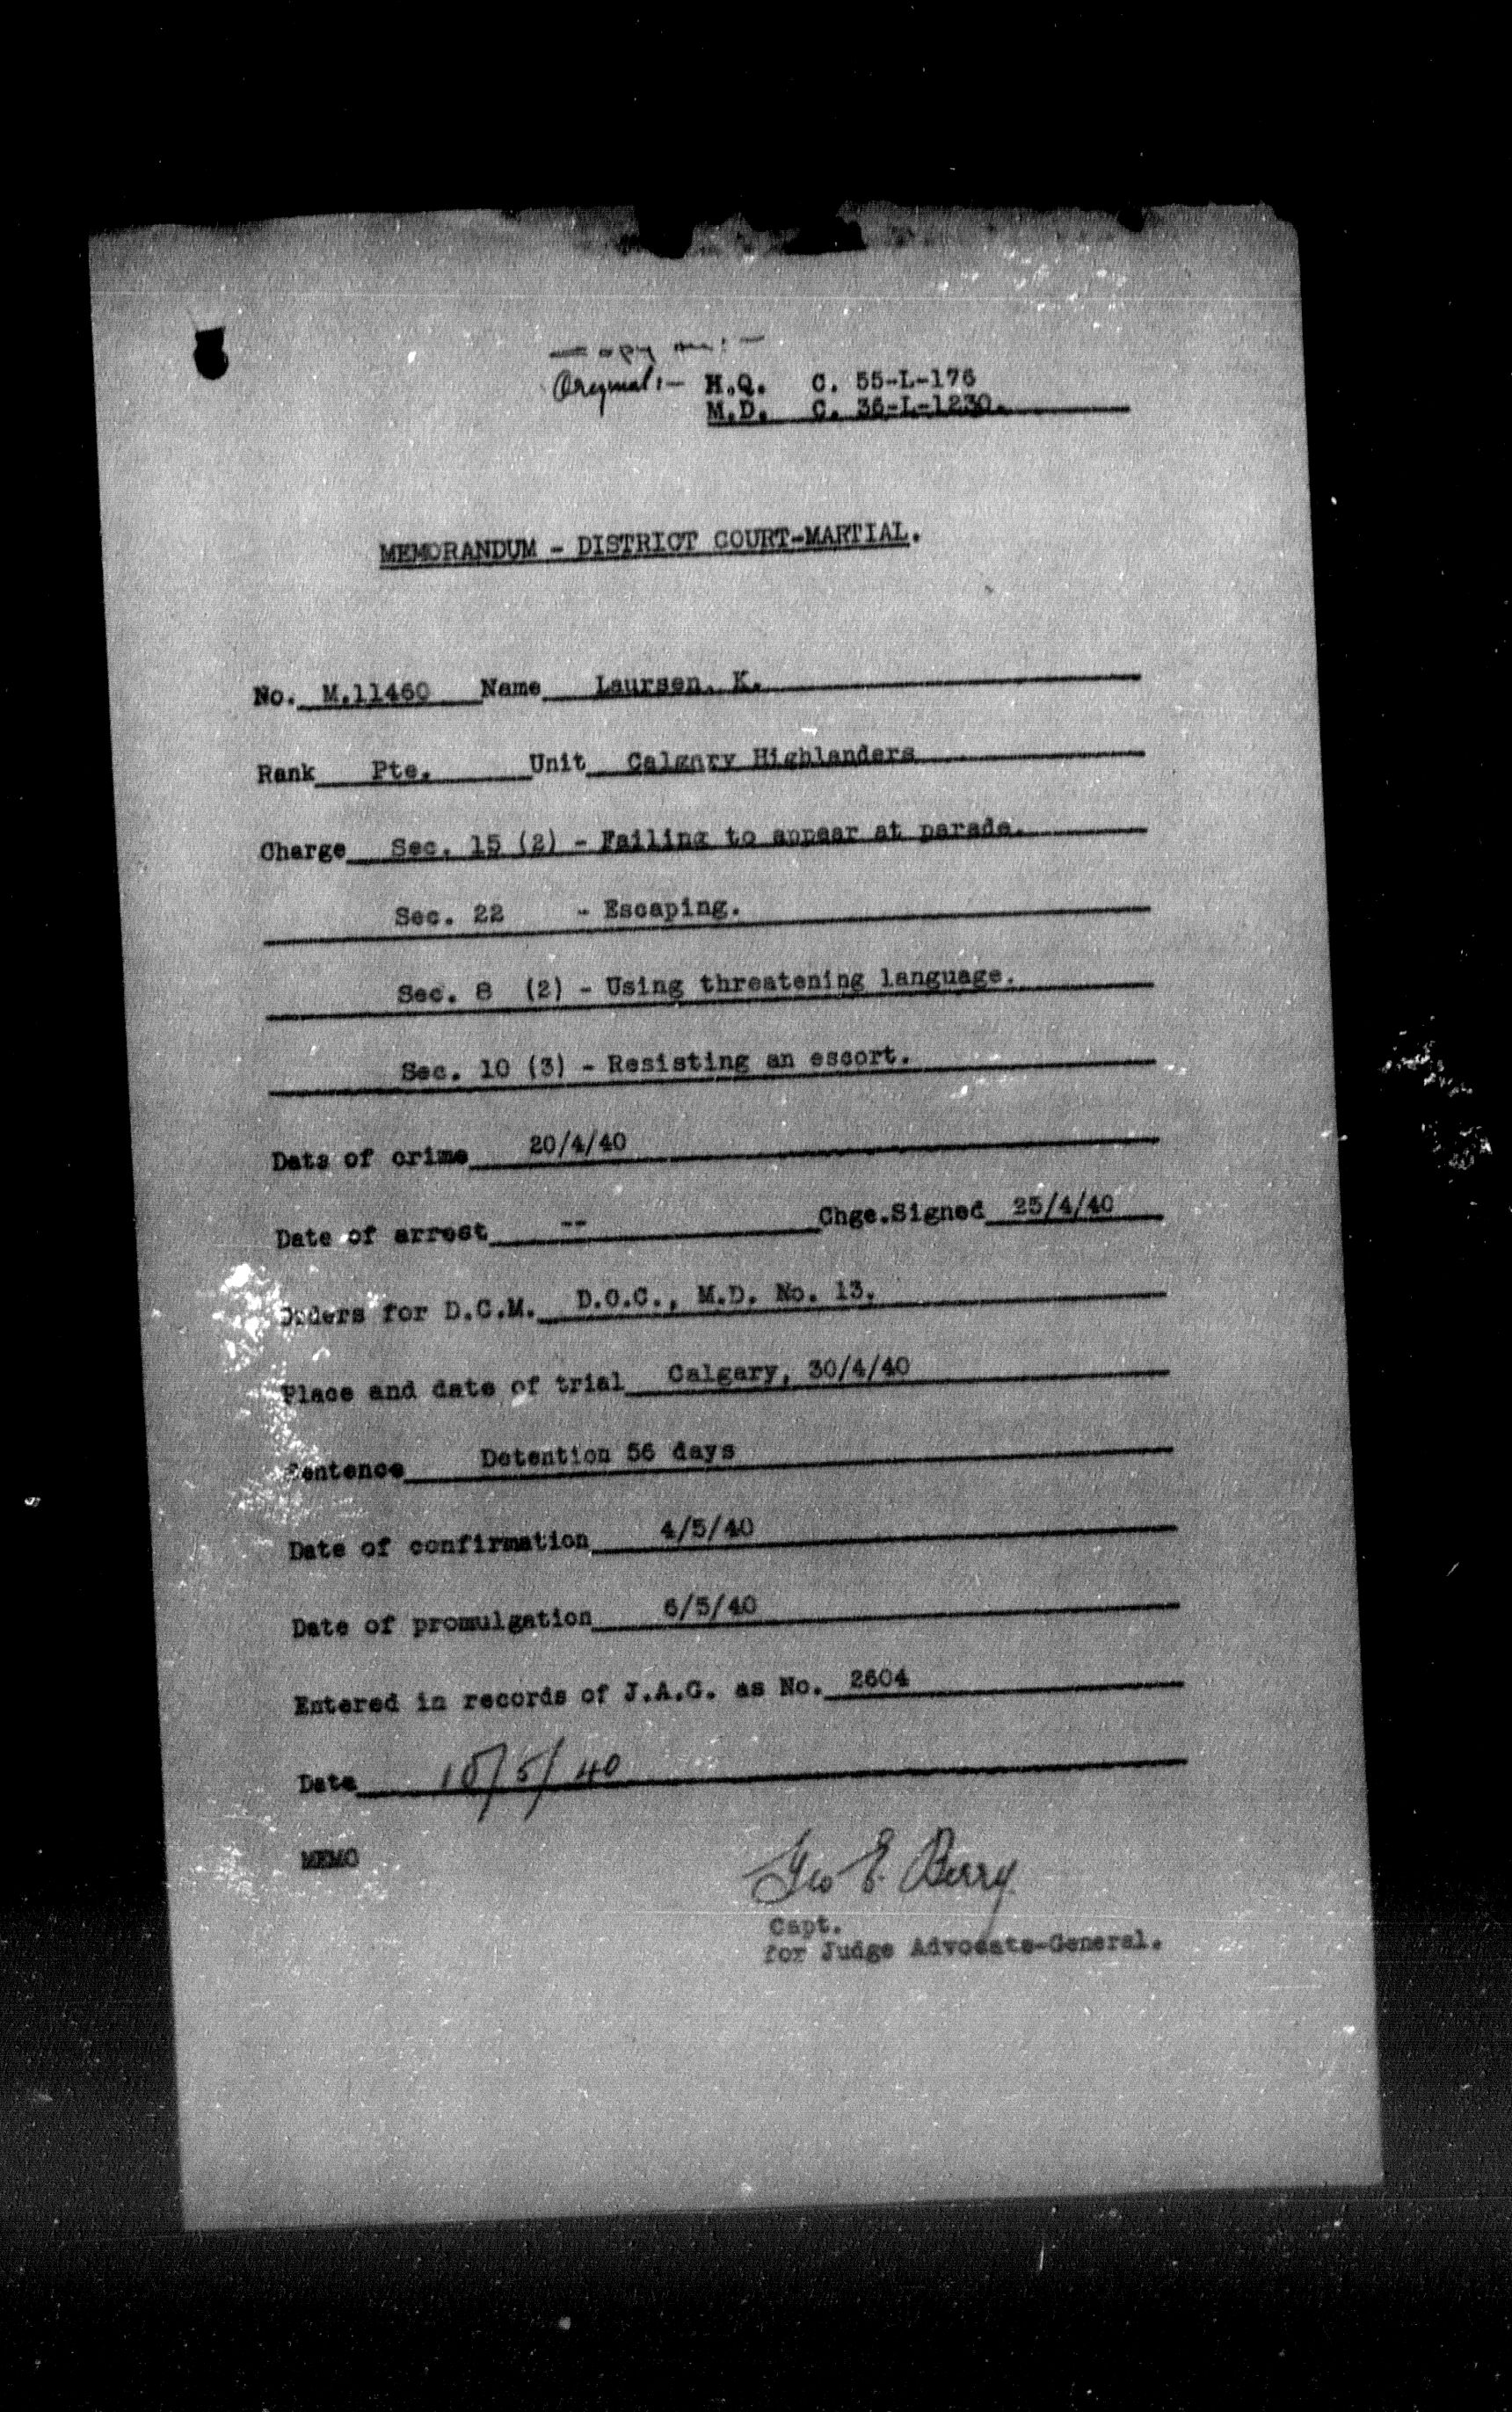 Original:- H.Q. C. 55-L-176
M.D. C. 36-L-1230.
MEMORANDUM - DISTRICT COURT-MARTIAL.
No. M.11460 Name Laursen, K.
Rank Pte. Unit Calgary Highlanders
Charge Sec. 15 (2) - Failing to appear at parade.
Sec. 22 - Escaping.
Sec. 8 (2) - Using threatening language.
Sec. 10 (3) - Resisting an escort.
Date of crime 20/4/40
Date of arrest -- Chge.Signed 25/4/40
Orders for D.C.M. D.O.C., M.D. No. 13.
Place and date of trial Calgary, 30/4/40
Sentence Detention 56 days
Date of confirmation 4/5/40
Date of promulgation 6/5/40
Entered in records of J.A.G. as No. 2604
Date 10/5/40
MEMO
Geo E. Berry
Capt.
for Judge Advocate-General.